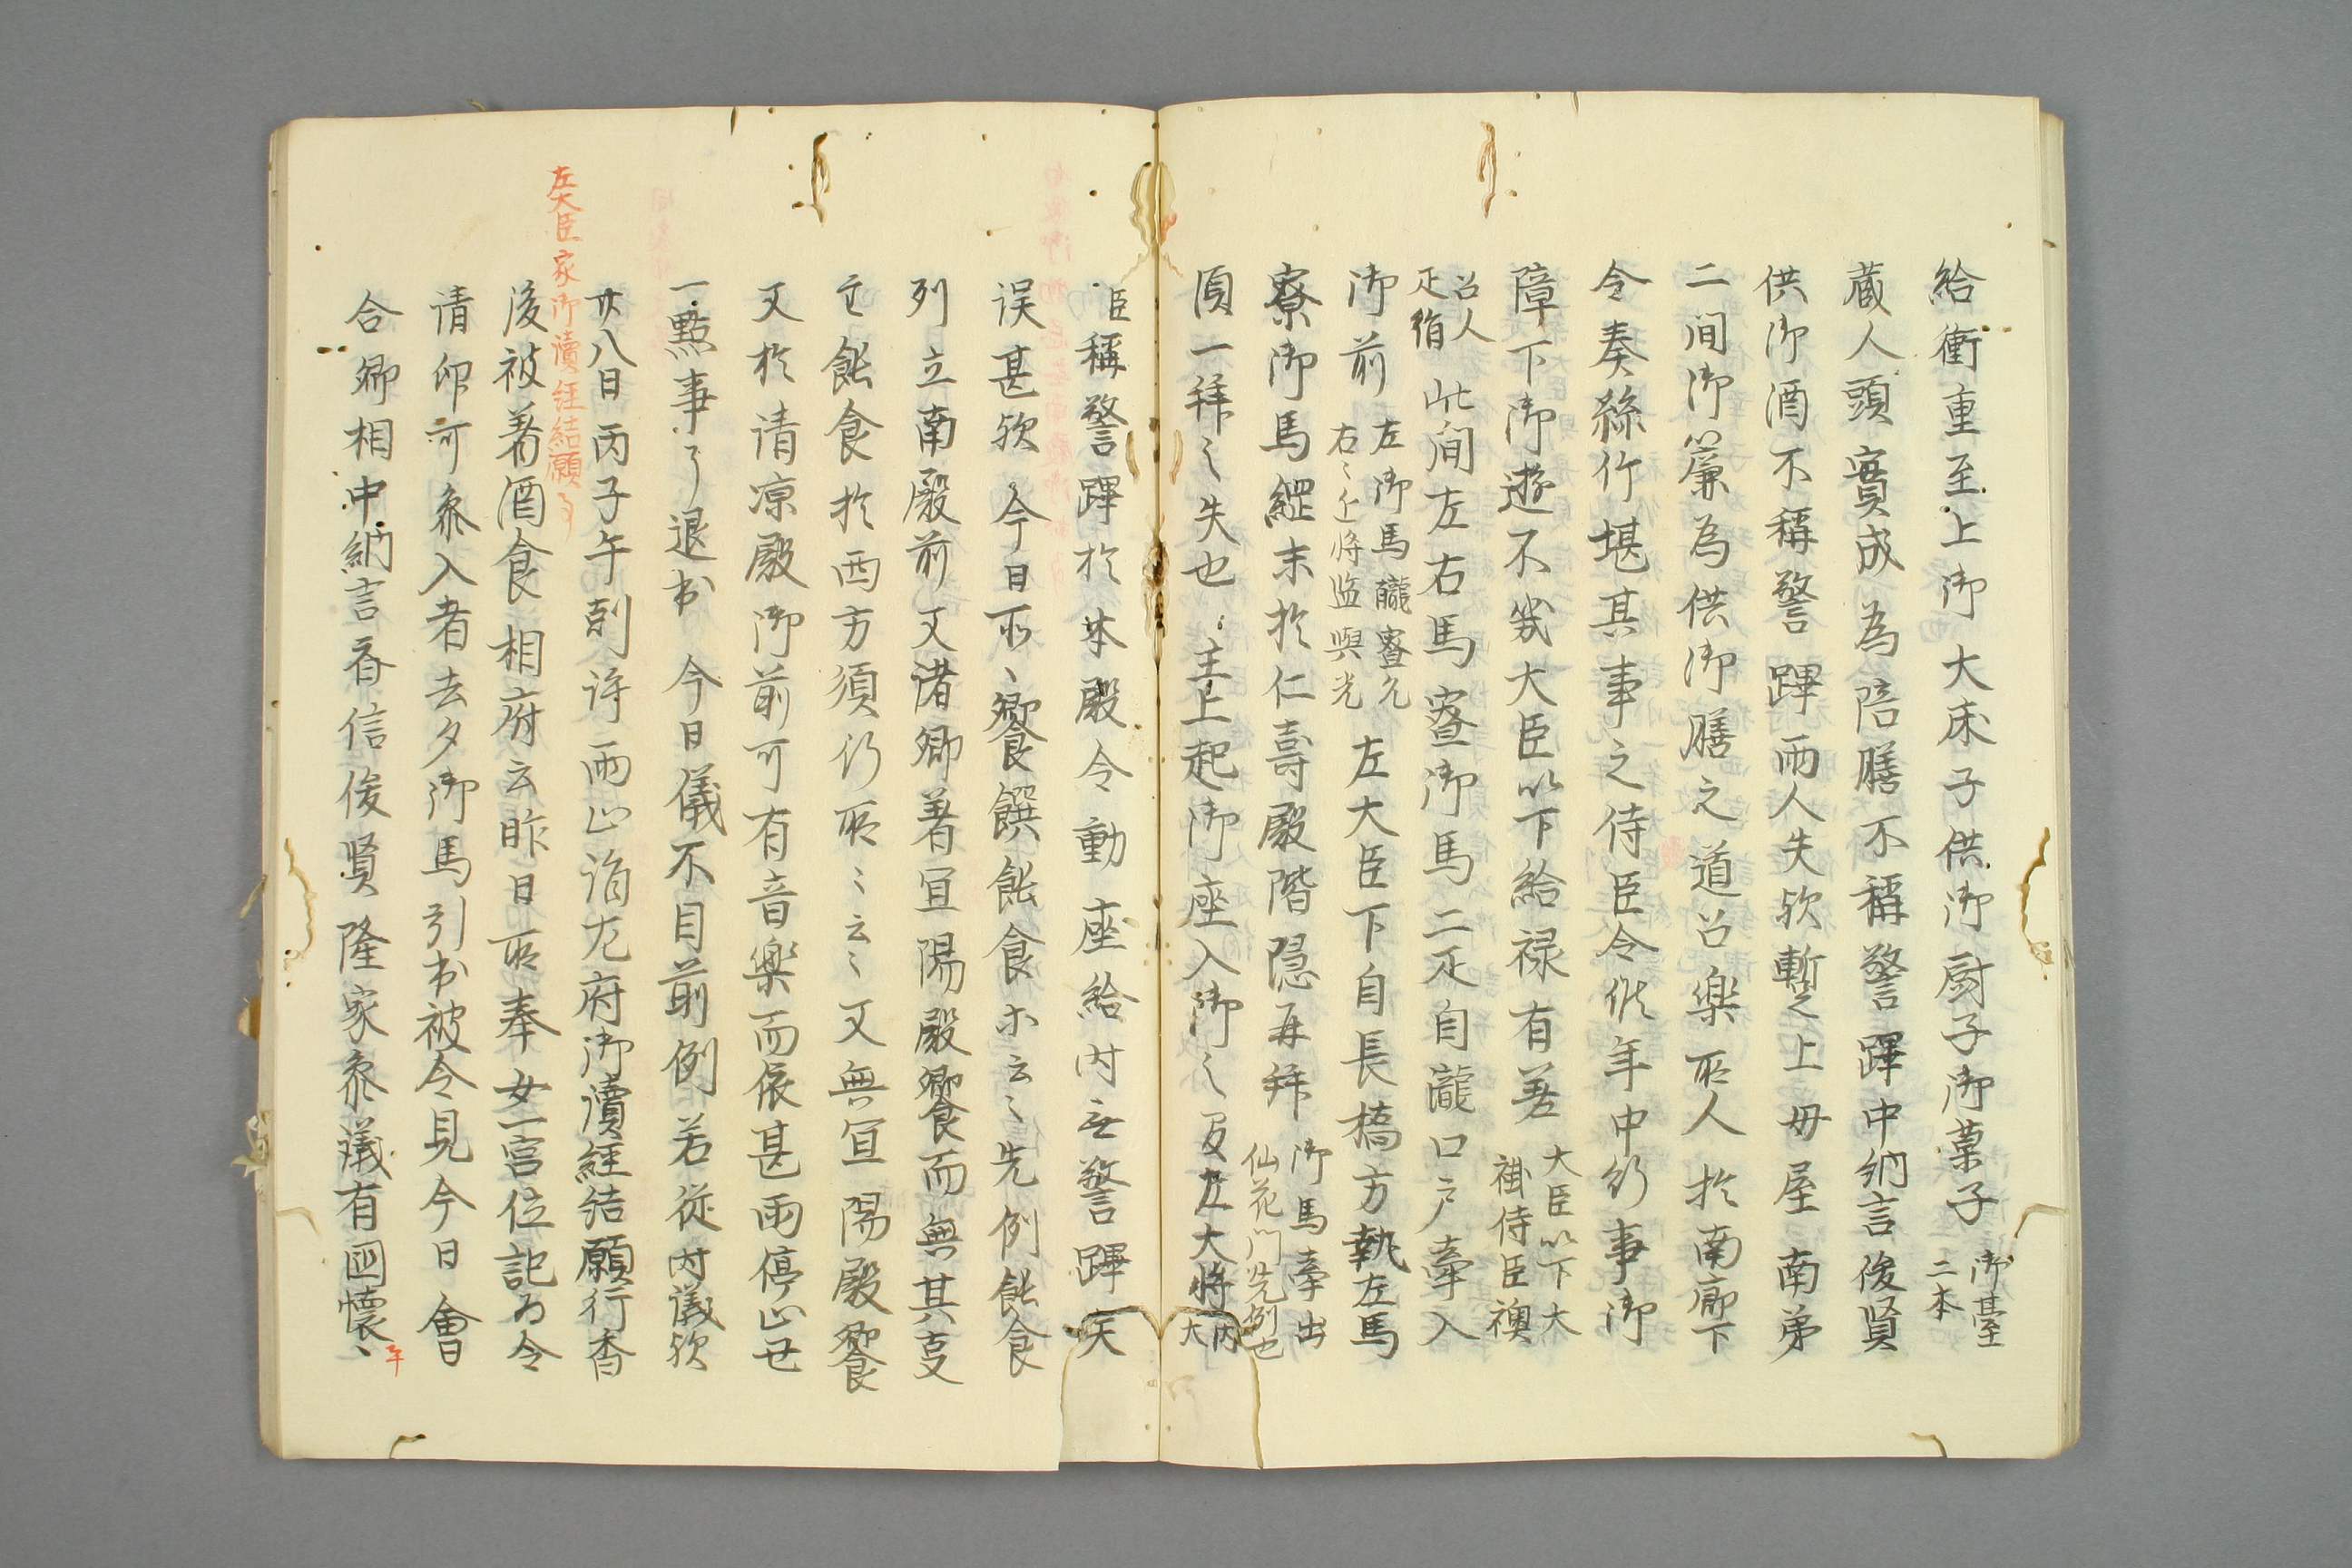 給衝重至上御大床子供御厨子御菓子御臺二本
蔵人頭實成為陪膳不稱警蹕中納言俊賢
供御酒不稱警蹕両人失欤暫上母屋南弟
二間御簾為供御膳之道召樂所人於南廊下
令奏絲竹堪其事之侍臣令候年中行事御
障下御遊不幾大臣以下給禄有差大臣以下大褂侍臣襖
召人疋絹此間左右馬寮御馬二疋自瀧口戸牽入
御前左御馬允右々近将監興光左大臣下自長橋方執左馬
寮御馬綱末於仁壽殿階隠再拜御馬牽出仙花門先例也
須一拜々失也主上起御座入御々及左大将内大
臣稱警蹕於本殿令動座給時无警蹕失
误甚欤今日所々饗饌飩食ホ云々先例飩食
列立南殿前又諸卿著宜陽殿饗而無其支
亡飩食於西方須行所々云々又無宜陽殿饗
又於清凉殿御前可有音樂而依甚雨停止廿
一點事了退出今日儀不因前例若従時議欤
廿八日丙子午剋許雨止詣左府御讀経結願行香
左大臣家御讀経結願事
後被著酒食相府云昨日所奉女一宮位記為令
请印可参入者去夕御馬引出被令見今日會
合卿相中納言斉信俊賢隆家参議有国懐平